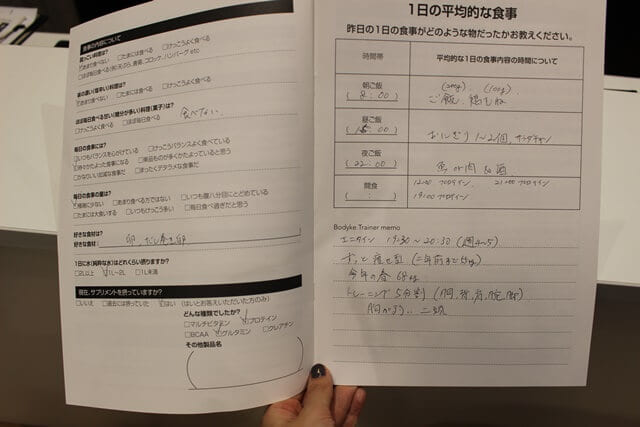 食事の内容について
脂っこい料理は?
☑あまり食べない □たまには食べる □けっこう食べる
□ほぼ毎日食べる(例:天ぷら、唐揚、コロッケ、ハンバーグ etc
味の濃い(塩辛い)料理は?
☑あまり食べない □たまには食べる □けっこう食べる
ほぼ毎日食べる甘い(糖分が多い)料理(菓子)は?
□けっこう食べる □ほぼ毎日食べる 食べない
毎日の食事には?
□いつもバランスを心がけている □けっこうバランスよく食べている
☑時々かたよった食事になる □単品ものが多くかたよっていると思う
□かなりいい加減な食事だ □まったくデタラメな食事だ
毎日の食事の量は?
☑極端に少ない □あまり食べる方ではない □いつも腹八分目にとどめている
□たまには大食いする □いつもけっこう多い □毎日食べ過ぎだと思う
好きな食材は?
好きな食材
1日に水(純粋な水)はどれくらい摂りますか?
□2L以上 ☑1L〜2L □1L未満
現在、サプリメントを摂っていますか?
□いいえ □過去には摂っていた ☑はい (はいとお答えいただいた方のみ)
どんな種類でしたか?
□マルチビタミン ☑プロテイン
□BCAA ☑グルタミン □クレアチン
その他製品名
1日の平均的な食事
昨日の1日の食事がどのような物だったかお教えください。
時間帯 平均的な1日の食事内容の時間について
朝ご飯 (200g) (100g)
( 8:00 ) ご飯、鶏むね
昼ご飯
おにぎり 1〜2個、サラダチキン
夜ご飯
( 22:00 ) 魚 or 肉
間食 12:00 プロテイン 21:00 プロテイン
( : ) 19:00 プロテイン
Bodyke Trainer memo
19:30 〜 20:30 (週4〜5)
今年の春 64kg
トレーニング 5分割 (胸,背,肩,腕,脚)